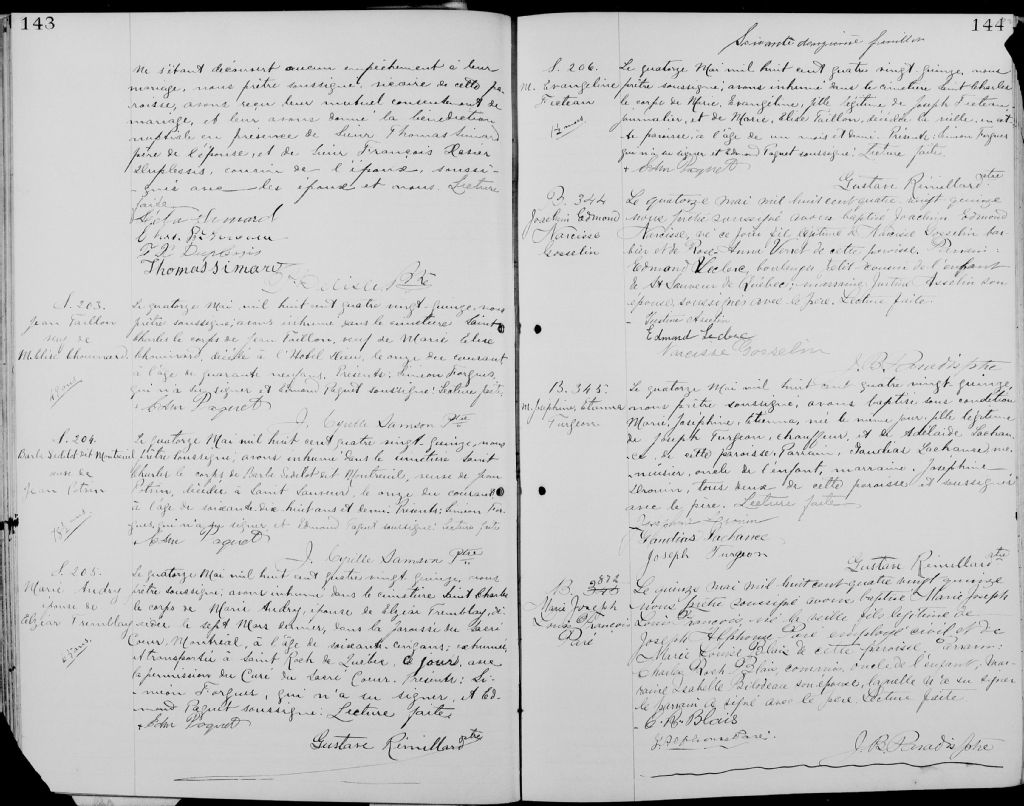 143
ne s'étant découvert aucun empêchement à leur
mariage, nous prêtre soussigné, vicaire de cette pa-
roisse, avons reçu leur mutuel consentement de
mariage, et leur avons donné la bénédiction
nuptiale en présence de Sieur Thomas Simard
père de l'épouse, et de Sieur François Xavier
Duplessis, cousin de l'époux, soussi-
gnés avec les époux et nous. Lecture
faite.
Simard
F X Duplessis
Thomas Simard
S. 203.
Jean Taillon
veuf de
Mathilde Chouinard
49 ans
Le quatorze Mai mil huit cent quatre vingt quinze, nous
prêtre soussigné, avons inhumé dans le cimetière Saint
Charles le corps de Jean Taillon, veuf de Marie Elise
Chouinard, décédé à l'Hôtel Dieu, le onze du courant
à l'âge de quarante neuf ans. Présents: Simeon Forgues,
qui n'a su signer et Edmond Paquet soussigné. Lecture faite.
+ Edm Paquet
J. Cyrille Samson Ptre
S. 204.
Barbe Sedelot dit Montreuil
veuve de
Jean Potvin
78½ ans
Le quatorze Mai mil huit cent quatre vingt quinze, nous
prêtre soussigné, avons inhumé dans le cimetière Saint
Charles le corps de Barbe Sedelot dit Montreuil, veuve de Jean
Potvin, décédée à Saint Sauveur, le onze du courant
à l'âge de soixante-dix huit ans et demi. Présents: Simeon For-
gues, qui n'a su signer et Edmond Paquet soussigné. Lecture faite
+ Edm Paquet
J. Cyrille Samson Ptre
S. 205.
Marie Audry
épouse de
Elzéar Tremblay
Le quatorze Mai mil huit cent quatre vingt quinze, nous
prêtre soussigné, avons inhumé dans le cimetière Saint Charles
le corps de Marie Audry, épouse de Elzéar Tremblay, dé-
cédée le sept Mars dernier, dans la paroisse du Sacré
Coeur, Montréal, à l'âge de soixante-cinq ans, exhumée,
et transportée à Saint Roch de Québec, ce jour, avec
la permission du Curé du Sacré Coeur. Présents: Si-
meon Forgues, qui n'a su signer, et Ed-
mond Paquet soussigné. Lecture faite.
+ Edm Paquet
Gustave Rémillard ptre
144
Soixante douzième feuillon
S. 206.
M. Evangeline
Fecteau
1½ mois
Le quatorze Mai mil huit cent quatre vingt quinze, nous
prêtre soussigné, avons inhumé dans le cimetière Saint Charles
le corps de Marie Evangéline, fille légitime de Joseph Fecteau,
journalier, et de Marie Elise Taillon, décédée la veille, en cet-
te paroisse, à l'âge de un mois et demi. Présents: Simeon Forgues
qui n'a su signer et Edmond Paquet soussigné. Lecture faite.
+ Edm Paquet
Gustave Rémillard ptre
B. 344
Joachim Edmond
Narcisse
Gosselin
Le quatorze mai mil huit cent quatre vingt quinze
nous prêtre soussigné avons baptisé Joachim Edmond
Narcisse, né ce jour, fils légitime de Narcisse Gosselin bar-
bier et de Rose Anna Voiret de cette paroisse. Parrain:
Edmond Leclerc, boulanger, petit cousin de l'enfant
de St Sauveur de Québec; marraine, Justine Asselin son
épouse, soussignés avec le père. Lecture faite.
Justine Asselin
Edmond Leclerc
Narcisse Gosselin
J. B. Paradis ptre
B. 345.
M. Josephine, Etienna
Turgeon
Le quatorze Mai mil huit cent quatre vingt quinze,
nous prêtre soussigné, avons baptisé sous condition
Marie, Joséphine, Etienna, née le même jour, fille légitime
de Joseph Turgeon, chauffeur, et de Adelaïde Lachan-
ce, de cette paroisse. Parrain, Gaudias Lachance, me-
nuisier, oncle de l'enfant, marraine, Joséphine
Drouin, tous deux de cette paroisse et soussignés
avec le père. Lecture faite
Josephine Drouin
Gaudias Lachance
Joseph Turgeon
Gustave Rémillard ptre
B.
Marie Joseph
Louis François
Paré
Le quinze mai mil huit cent quatre vingt quinze
nous prêtre soussigné avons baptisé Marie Joseph
Louis François, né la veille fils légitime de
Joseph Alphonse Paré employé civil et de
Marie Louise Blais de cette paroisse. Parrain:
Charles Roch Blais, commis, oncle de l'enfant, mar-
raine Isabelle Bilodeau son épouse, laquelle n'a su signer
le parrain a signé avec le père. Lecture faite
C. R. Blais
J. Alphonse Paré
J. B. Paradis ptre